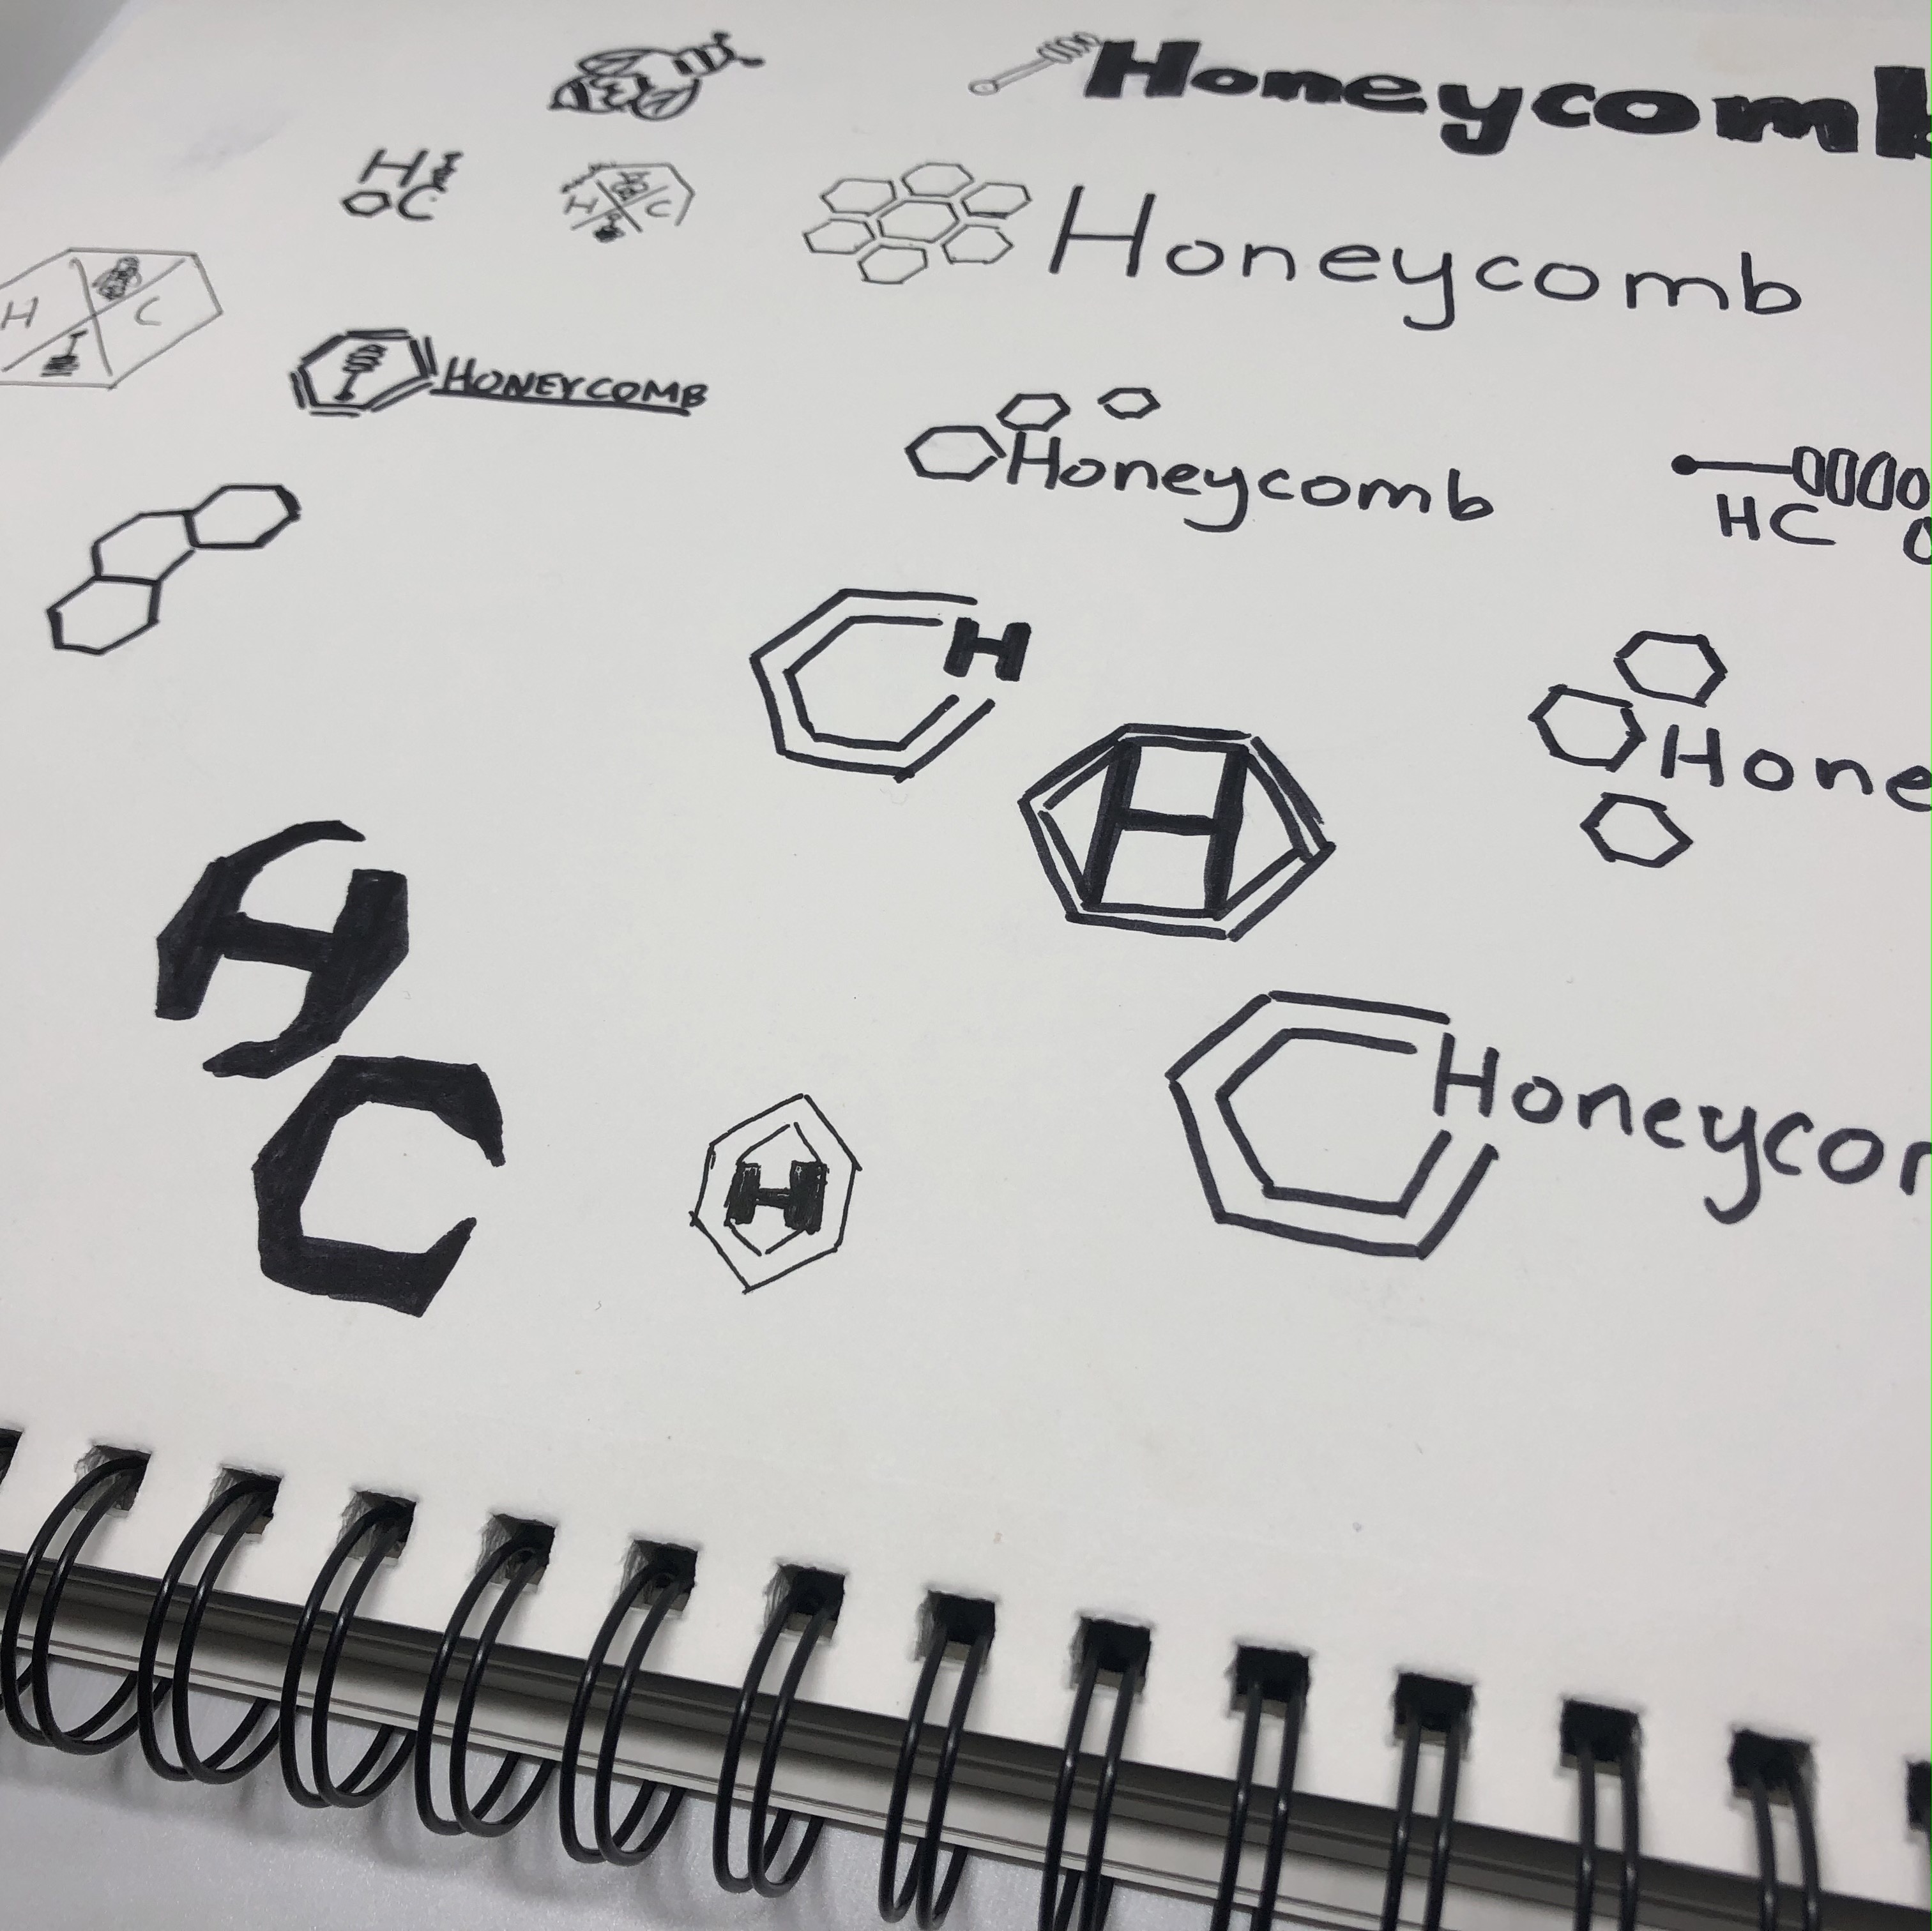 Honeycomb
H
C
H C
Honeycomb
H C
HONEYCOMB
Honeycomb
HC
H
Hone
H
H
C
H
Honeycom